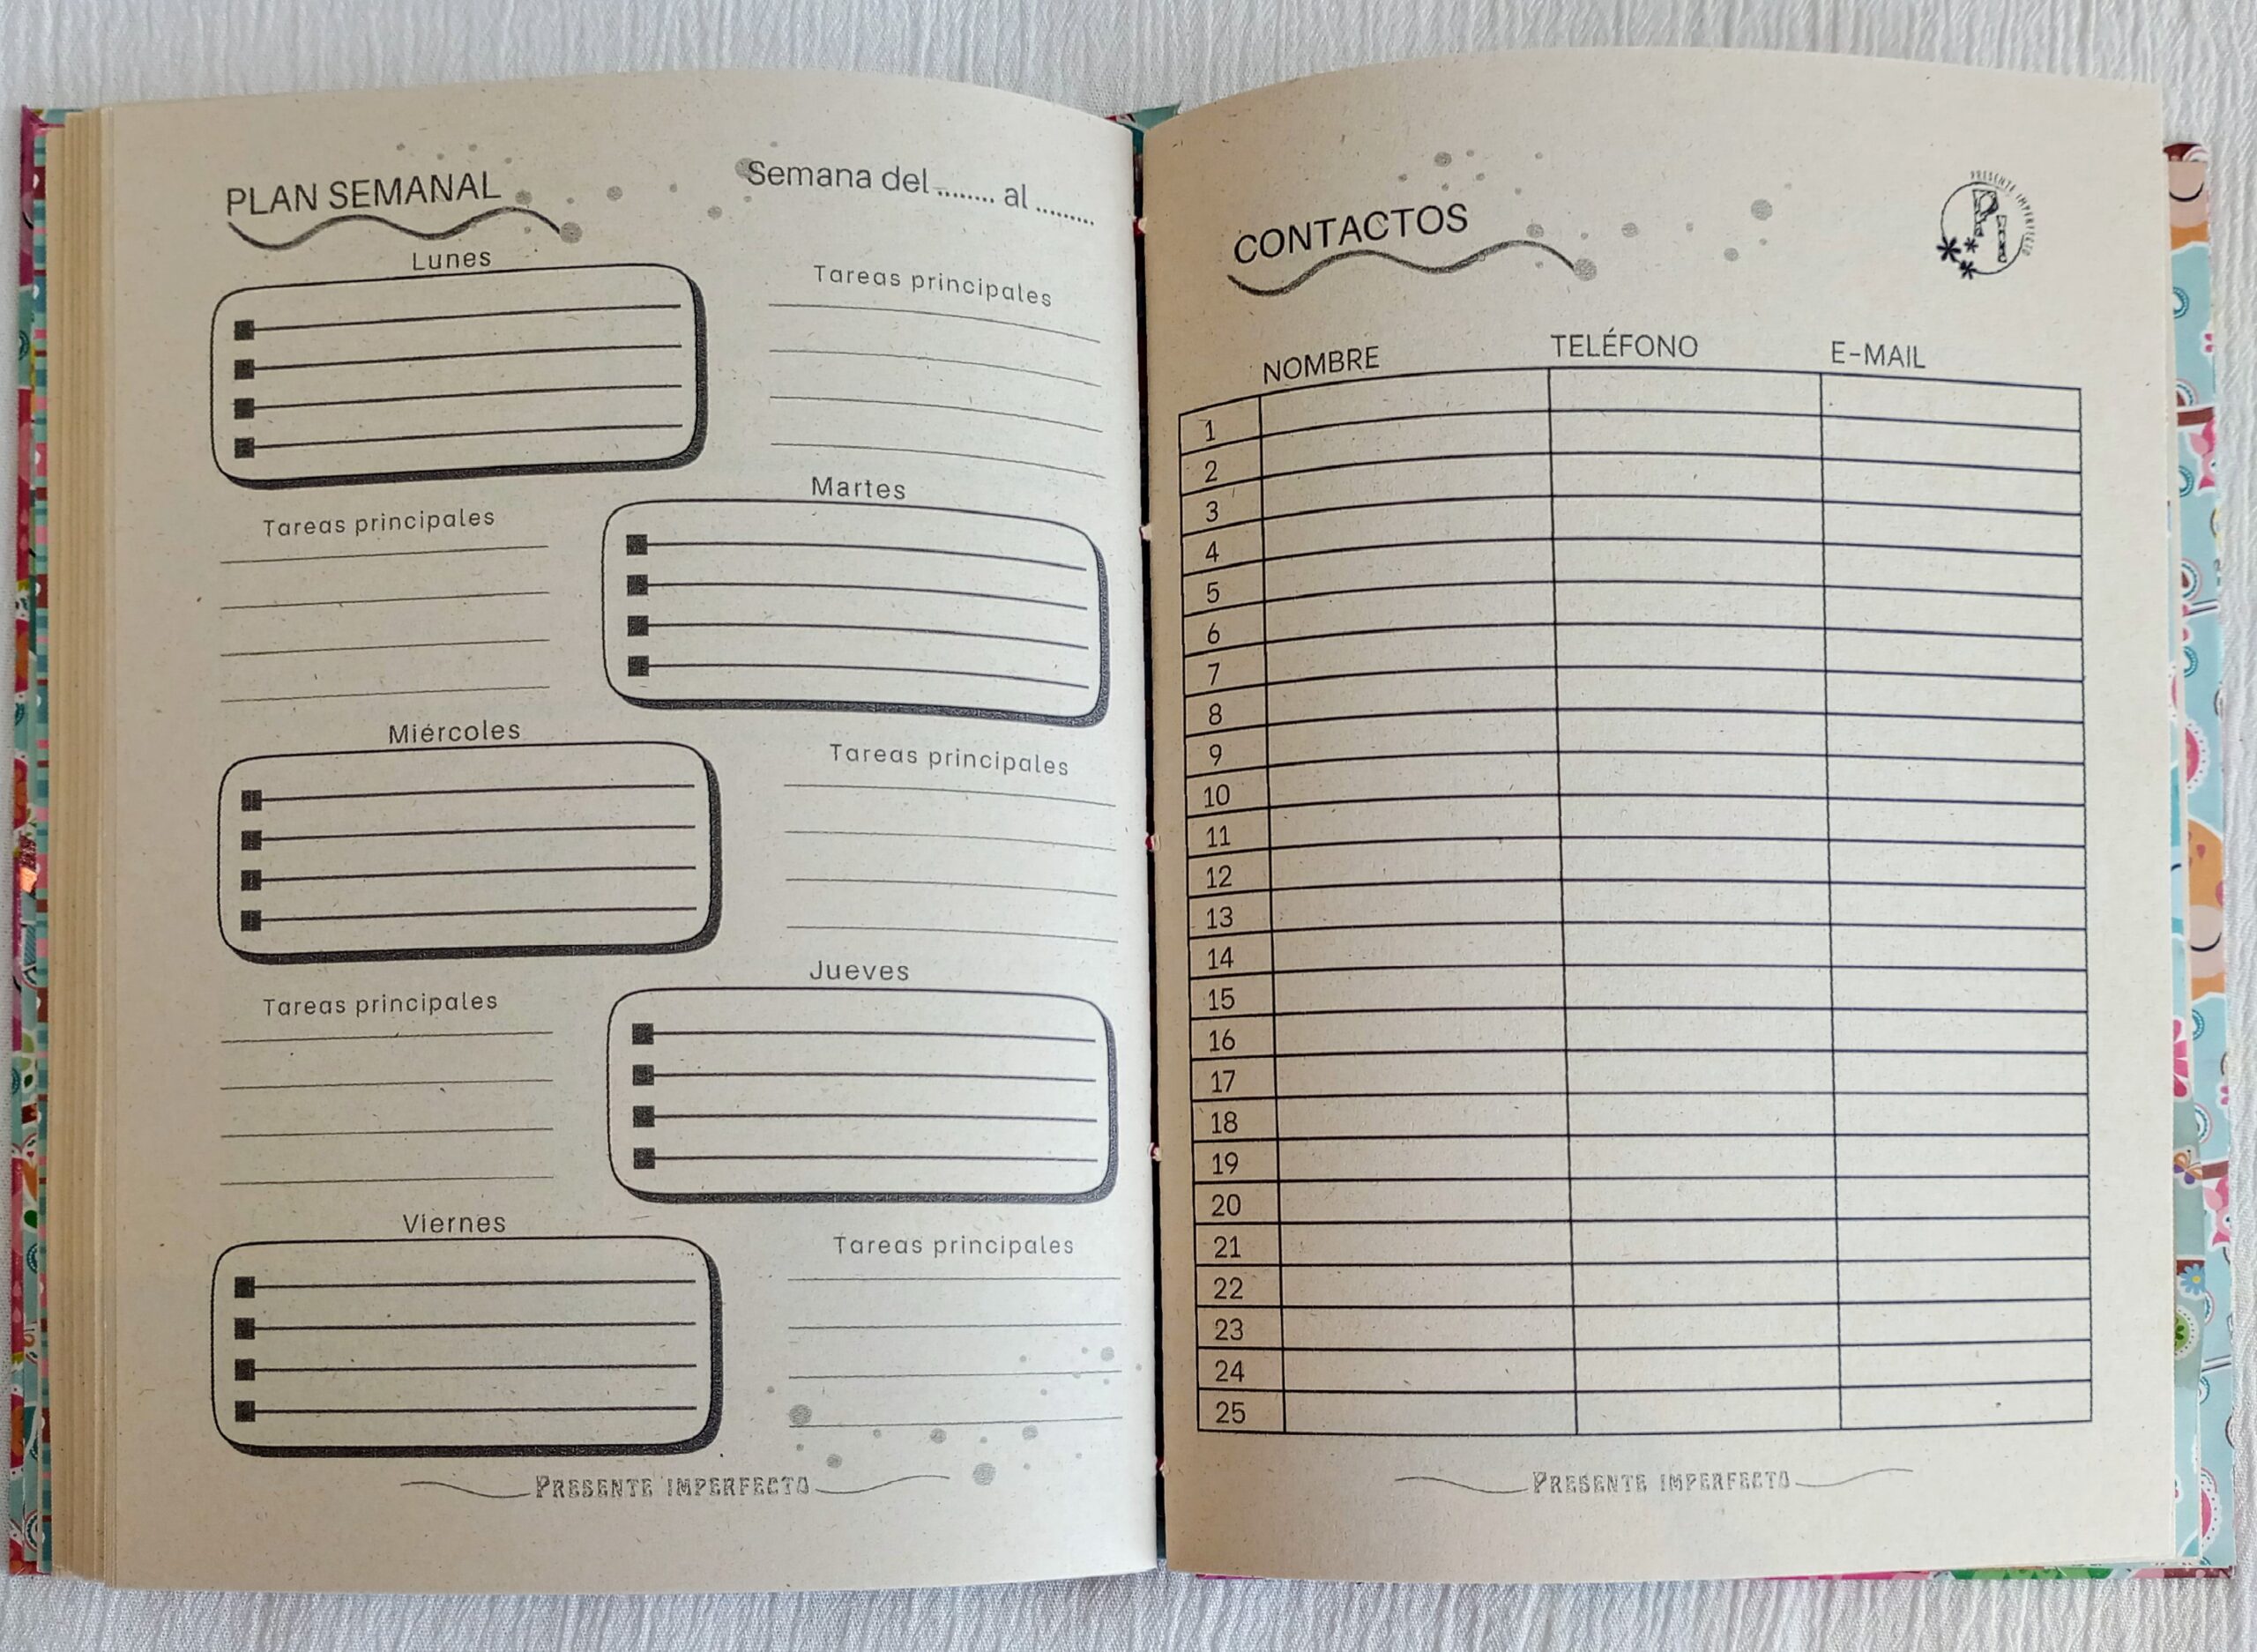 PLAN SEMANAL
Semana del ........ al .........
Lunes
Tareas principales
Martes
Tareas principales
Miércoles
Tareas principales
Jueves
Tareas principales
Viernes
Tareas principales
PRESENTE IMPERFECTO
CONTACTOS
PRESENTE IMPERFECTO
PI
NOMBRE TELÉFONO E-MAIL
1
2
3
4
5
6
7
8
9
10
11
12
13
14
15
16
17
18
19
20
21
22
23
24
25
PRESENTE IMPERFECTO